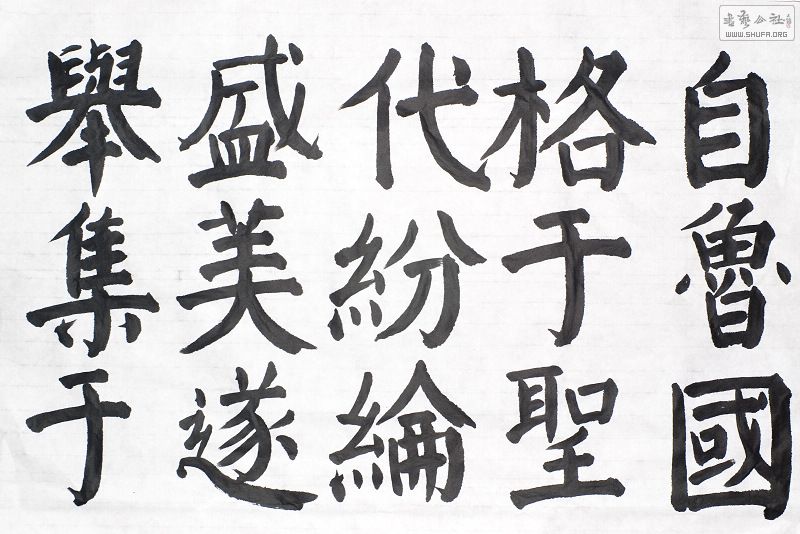 自魯國
格于聖
代紛綸
盛美遂
舉集于
書藝公社
WWW.SHUFA.ORG